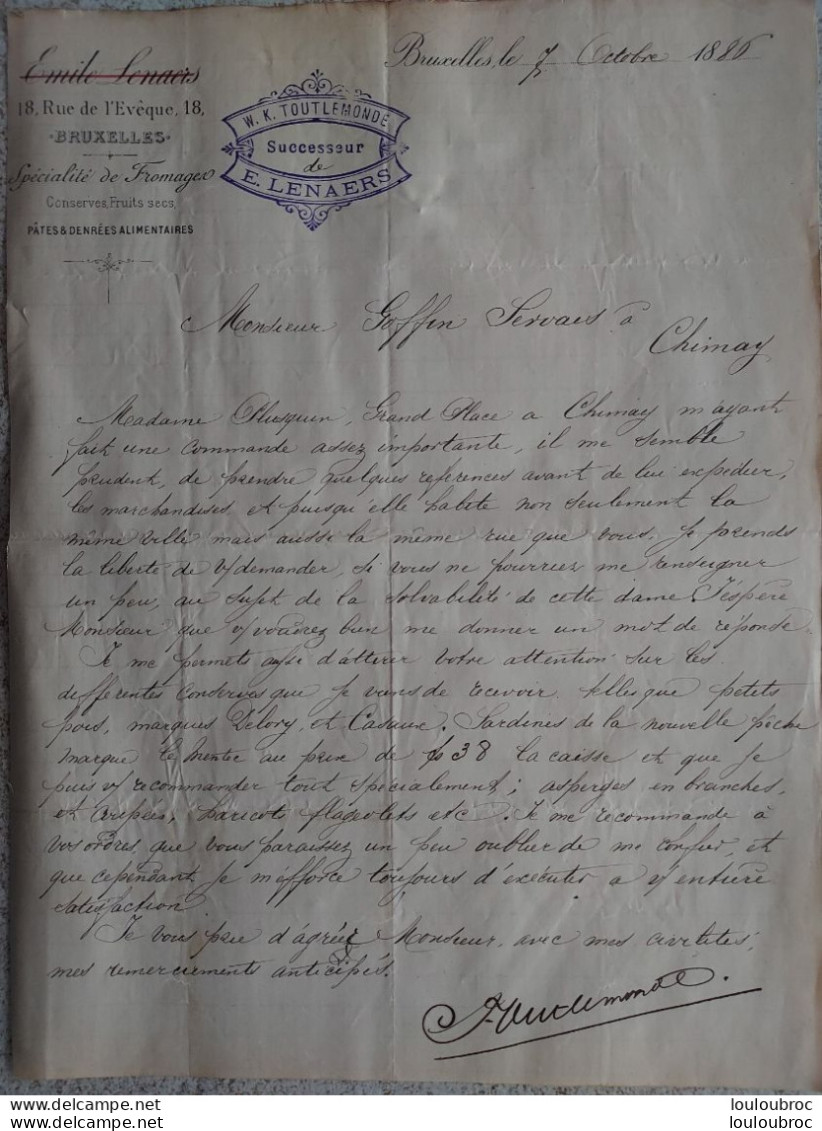 Emile Lenaers
18, Rue de l'Evêque, 18,
BRUXELLES
Spécialité de Fromages
Conserves, Fruits secs,
PÂTES & DENRÉES ALIMENTAIRES
W. K. TOUTLEMONDE
Successeur
de
E. LENAERS
Bruxelles, le 7 Octobre 1886
Monsieur Goffin Servais à
Chimay
Madame Plusquin, Grand Place a Chimay m'ayant
fait une commande assez importante, il me semble
prudent, de prendre quelques references avant de lui expedier,
les marchandises, et puisqu'elle habite non seulement la
même ville mais aussi la même rue que vous, je prends
la liberté de v/demander, si vous ne pourriez me renseigner
un peu, au sujet de la solvabilité de cette dame. J'espère
Monsieur que v/voudrez bien me donner un mot de réponse.
Je me permets aussi d'attirer votre attention sur les
differentes conserves que je viens de recevoir telles que petits
pois, marques Delory, et Casaux. Sardines de la nouvelle pêche
marque au prix de 38 la caisse et que je
puis v/ recommander tout spécialement; asperges en branches,
et coupées, haricots flageolets etc. Je me recommande à
vos ordres, que vous paraissez un peu oublier de me confier, et
que cependant je m'efforce toujours d'exécuter a v/ entière
satisfaction.
Je vous prie d'agréer Monsieur, avec mes civilités,
mes remerciements anticipés.
Toutlemonde
louloubroc
louloubroc